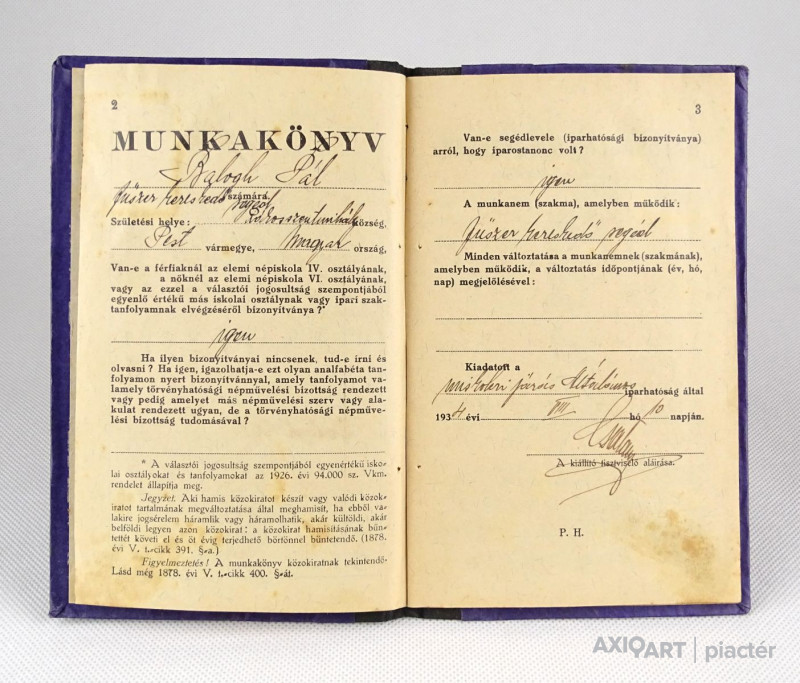 2
MUNKAKÖNYV
Balogh Pál
fűszer kereskedő segéd számára.
Születési helye: Rákosszentmihály község,
Pest vármegye, Magyar ország,
Van-e a férfiaknál az elemi népiskola IV. osztályának,
a nőknél az elemi népiskola VI. osztályának,
vagy az ezzel a választói jogosultság szempontjából
egyenlő értékű más iskolai osztálynak vagy ipari szak-
tanfolyamnak elvégzéséről bizonyítványa?*
igen
Ha ilyen bizonyítványai nincsenek, tud-e írni és
olvasni? Ha igen, igazolhatja-e ezt olyan analfabéta tan-
folyamon nyert bizonyítvánnyal, amely tanfolyamot va-
lamely törvényhatósági népművelési bizottság rendezett
vagy pedig amelyet más népművelési szerv vagy ala-
kulat rendezett ugyan, de a törvényhatósági népműve-
lési bizottság tudomásával?
* A választói jogosultság szempontjából egyenértékű isko-
lai osztályokat és tanfolyamokat az 1926. évi 94.000 sz. Vkm.
rendelet állapítja meg.
Jegyzet. Aki hamis közokiratot készít vagy valódi közok-
iratot tartalmának megváltoztatása által meghamisít, ha ebből va-
lakire jogsérelem háramlik vagy háramolhatik, akár külföldi, akár
belföldi legyen azon közokirat: a közokirat hamisításának bün-
tettét követi el és öt évig terjedhető börtönnel büntetendő. (1878.
évi V. t.-cikk 391. §-a.)
Figyelmeztetés! A munkakönyv közokiratnak tekintendő.
Lásd még 1878. évi V. t.-cikk 400. §-át.
3
Van-e segédlevele (iparhatósági bizonyítványa)
arról, hogy iparostanonc volt?
igen
A munkanem (szakma), amelyben működik:
fűszer kereskedő segéd
Minden változtatása a munkanemnek (szakmának),
amelyben működik, a változtatás időpontjának (év, hó,
nap) megjelölésével:
Kiadatott a
miskolci járás iparhatóság által
1934 évi VIII hó 10 napján.
A kiállító tisztviselő aláírása.
P. H.
AXIOART | piactér